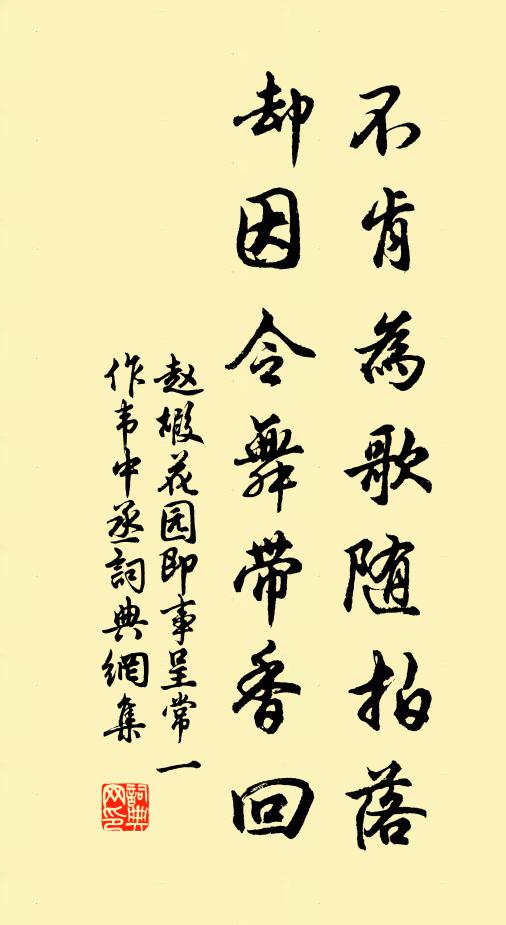 不肯為歌随拍落
却因令舞带香回
赵嘏花园即事呈常一
作韦中丞詞典網集
詞典網印